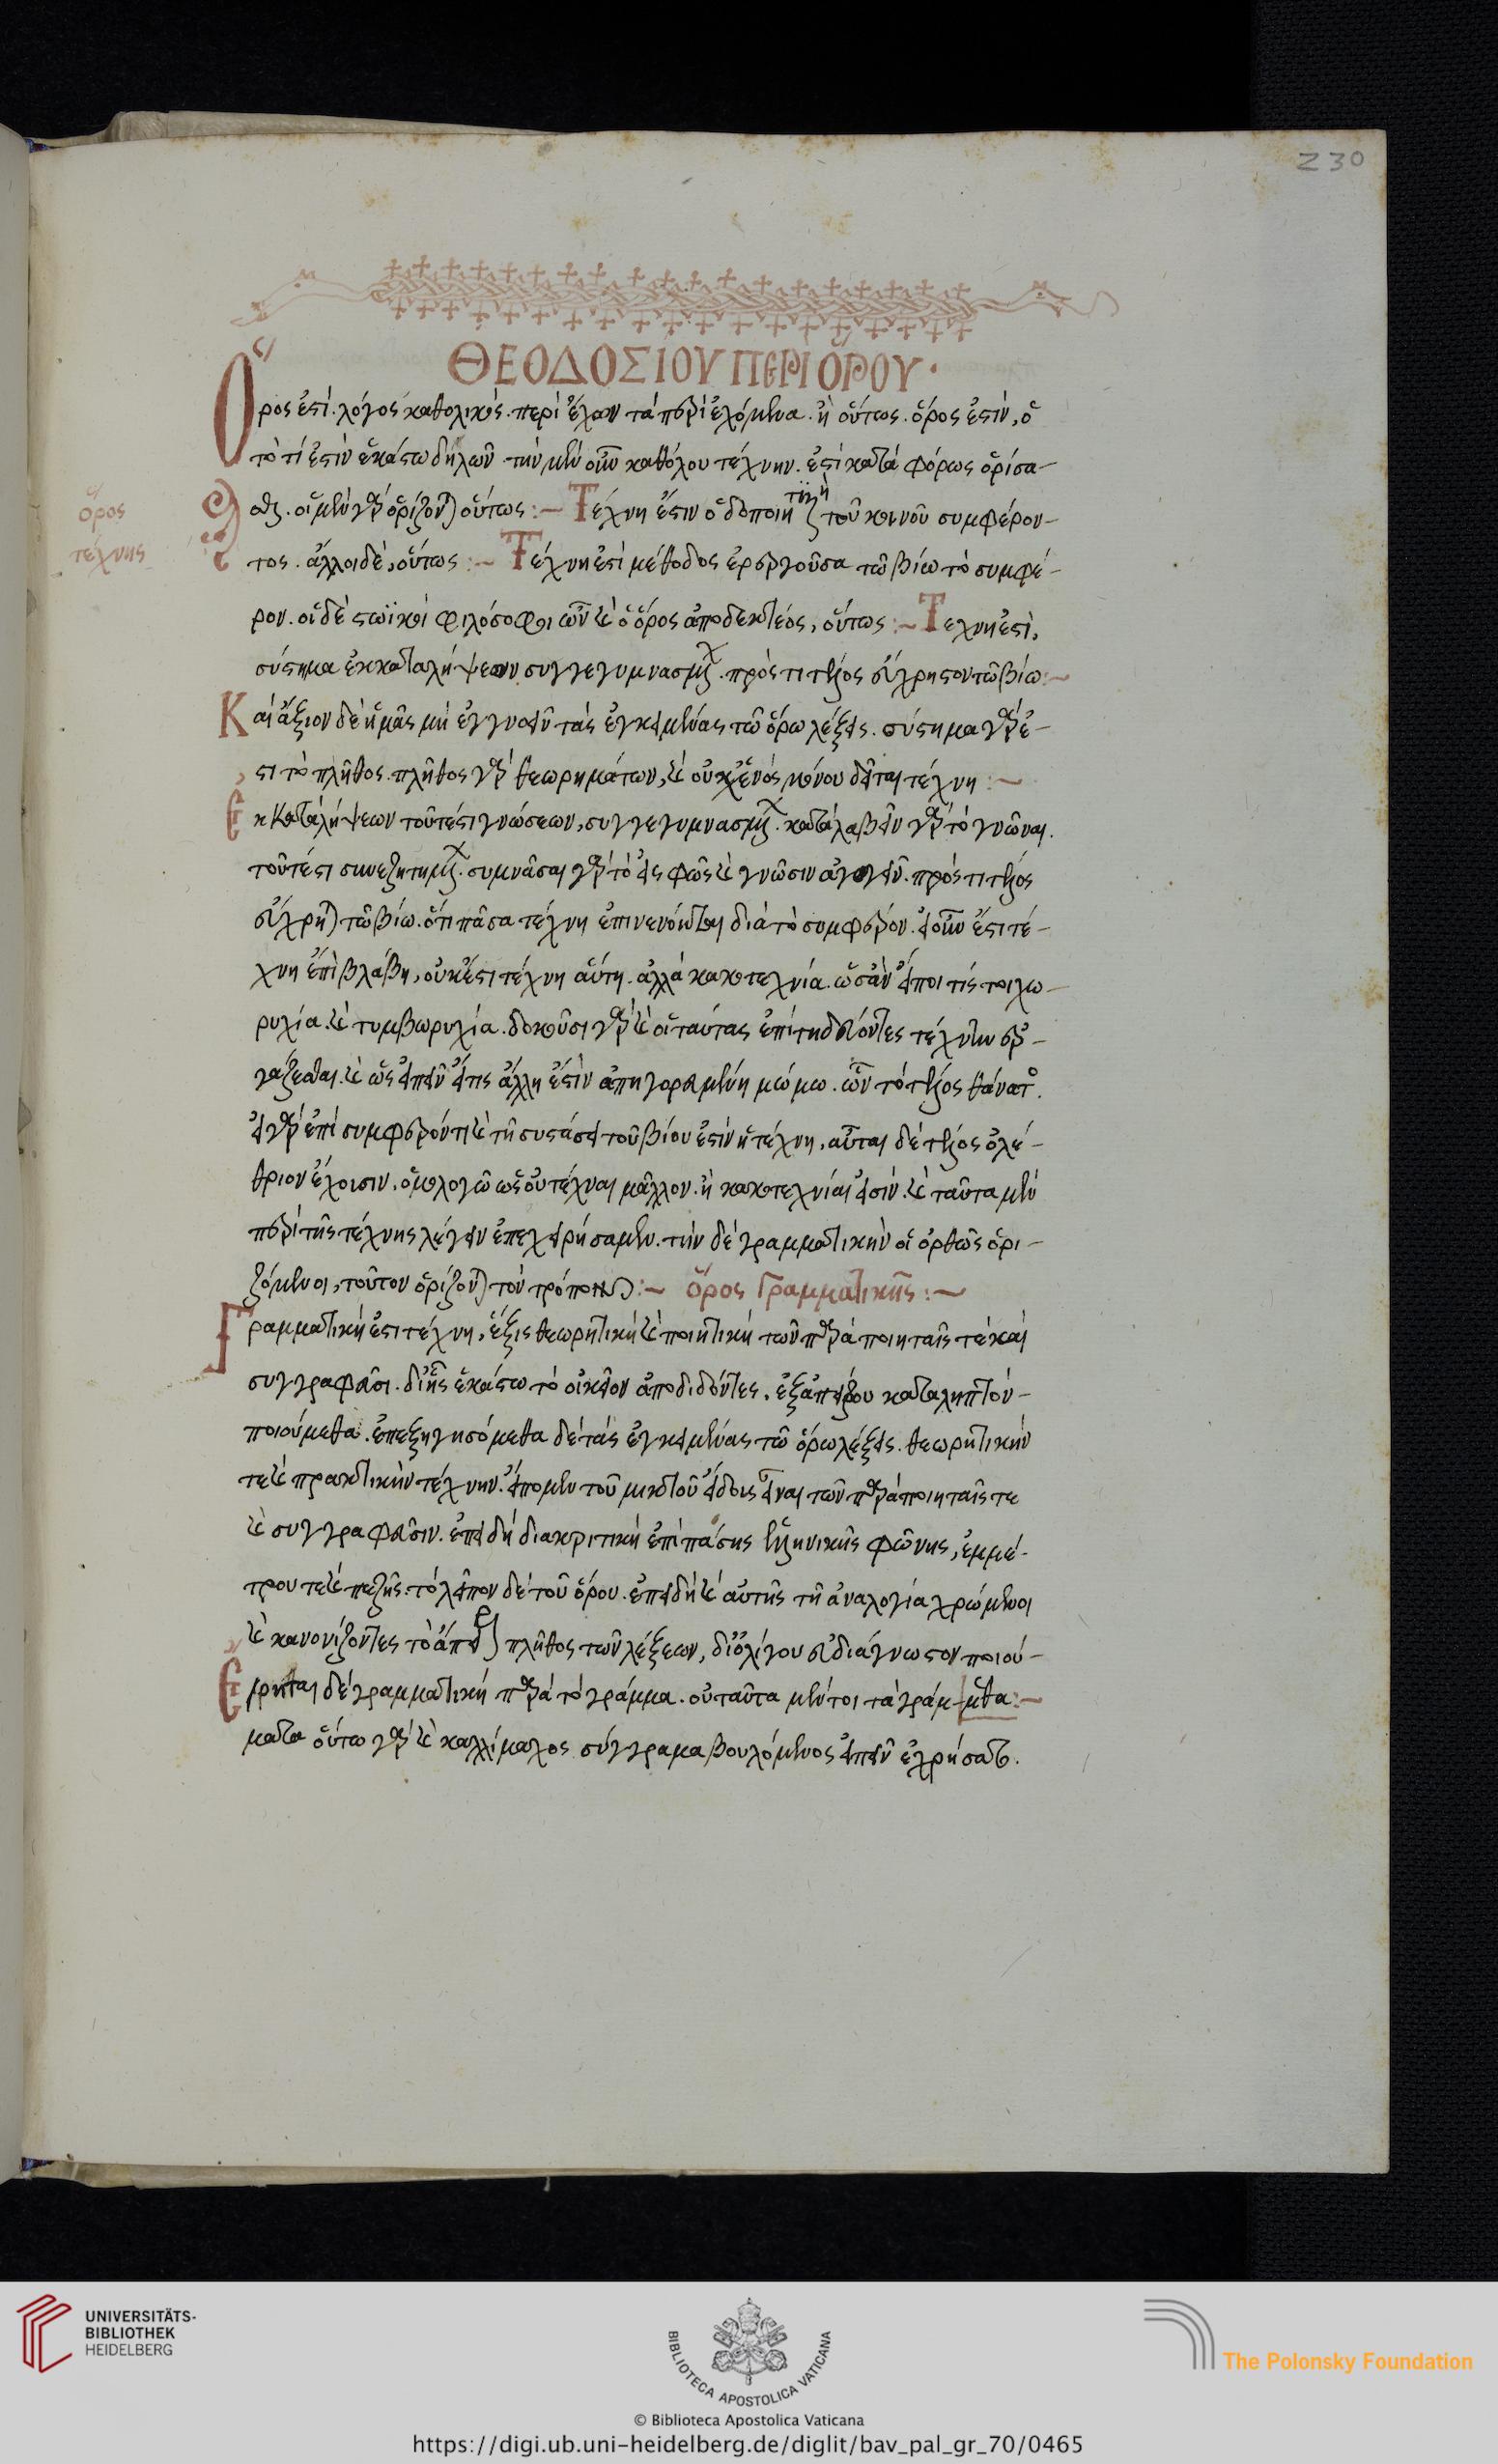 230
ΘΕΟΔΟΣΙΟΥ ΠΕΡΙ ὍΡΟΥ·
Ὅρος ἐστί· λόγος καθολικὸς· περιέχων τὰ περιεχόμενα· ἢ οὕτως· ὅρος ἐστὶν, ὁ
τὸ τί ἐστὶν ἑκάστω δηλῶν· τὴν μὲν οὖν καθόλου τέχνην· ἔστι κατὰ φόρως ὁρίσα-
σθαι· οἱ μὲν γὰρ ὁρίζονται οὕτως :- Τέχνη ἐστιν ὁδοποιητικὴ τοῦ κοινοῦ συμφέρον-
ὅρος
τέχνης
τος· ἄλλοι δὲ, οὕτως :- Τέχνη ἐστὶ μέθοδος ἐνεργοῦσα τῶ βίω τὸ συμφέ-
ρον· οἱ δὲ στωϊκοὶ φιλόσοφοι ὧν καὶ ὁ ὅρος ἀποδεκτέος, οὕτως :- Τεχνη ἐστὶ,
σύστημα ἐκ καταλήψεων συγγεγυμνασμένων· πρός τι τέλος εὔχρηστον τῶ βίω :-
Καὶ ἄξιον δὲ ἡμᾶς μὴ ἀγνοεῖν τὰς ἐγκειμένας τῶ ὅρω λέξεις· σύστημα γὰρ ἐ-
στι τὸ πλῆθος· πλῆθος γὰρ θεωρημάτων, καὶ οὐχ ἑνὸς μόνου δεῖται τέχνη :-
Ἐκ καταλήψεων τοῦτέστι γνώσεων, συγγεγυμνασμένων· καταλαβεῖν γὰρ τὸ γνῶναι.
τοῦτέστι συνεζητημένων· γυμνᾶσαι γὰρ τὸ εἰς φῶς καὶ γνῶσιν ἀγαγεῖν· πρός τι τέλος
εὔχρηστον τῶ βίω· ὅτι πᾶσα τέχνη ἐπινενόηται διὰ τὸ συμφέρον· εἰ οὖν ἔστι τέ-
χνη ἐπὶ βλάβη, οὐκ ἔστι τέχνη αὕτη· ἀλλὰ κακοτεχνία· ὡς ἂν εἴποι τίς τοιχω-
ρυχία· καὶ τυμβωρυχία· δοκοῦσι γὰρ καὶ οἱ ταύτας ἐπιτηδεύοντες τέχνην ἐρ-
γάζεσθαι· καὶ ὡς εἰπεῖν εἴ τις ἄλλη ἐστὶν ἀπηγορευμένη μώμω· ὧν τὸ τέλος θάνατος.
εἰ γὰρ ἐπὶ συμφέροντι καὶ τῆ συστάσει τοῦ βίου ἐστὶν ἡ τέχνη, αὗται δὲ τέλος ὀλέ-
θριον ἔχουσιν, ὁμολογῶ ὡς οὐ τέχναι μᾶλλον· ἢ κακοτεχνίαι εἰσίν· καὶ ταῦτα μὲν
περὶ τῆς τέχνης λέγειν ἐπεχειρήσαμεν· τὴν δὲ γραμματικὴν οἱ ὀρθῶς ὁρι-
ζόμενοι, τοῦτον ὁρίζονται τὸν τρόπον :- ὅρος Γραμματικῆς :-
Γραμματική ἐστι τέχνη, ἕξις θεωρητικὴ καὶ ποιητικὴ τῶν παρὰ ποιηταῖς τὲ καὶ
συγγραφεῦσι· δι' ἧς ἑκάστω τὸ οἰκεῖον ἀποδιδόντες, ἐξ ἀπείρου καταληπτὸν-
ποιούμεθα· ἐπεξηγησόμεθα δὲ τὰς ἐγκειμένας τῶ ὅρω λέξεις· θεωρητικὴν
τε καὶ πρακτικὴν τέχνην· εἴπομεν τοῦ μικτοῦ εἴδους εἶναι τῶν παρὰ ποιηταῖς τε
καὶ συγγραφεῦσιν· ἐπειδὴ διακριτικὴ ἐπὶ πάσης ἑλληνικῆς φωνῆς, ἐμμέ-
τρου τε καὶ πεζῆς· τὸ λεῖπον δὲ τοῦ ὅρου· ἐπειδὴ καὶ αὐτῆς τῆ ἀναλογία χρώμενοι
καὶ κανονίζοντες τὸ ἄπειρον πλῆθος τῶν λέξεων, δι' ὀλίγου εὐδιάγνωστον ποιού-
Εἴρηται δὲ γραμματικὴ παρὰ τὸ γράμμα· οὐ ταῦτα μέντοι τὰ γράμ- μεθα :-
ματα οὕτω γὰρ καὶ καλλίμαχος σύγγραμα βουλόμενος εἰπεῖν ἐχρήσατο.
UNIVERSITÄTS-
BIBLIOTHEK
HEIDELBERG
BIBLIOTECA APOSTOLICA VATICANA
The Polonsky Foundation
© Biblioteca Apostolica Vaticana
https://digi.ub.uni-heidelberg.de/diglit/bav_pal_gr_70/0465